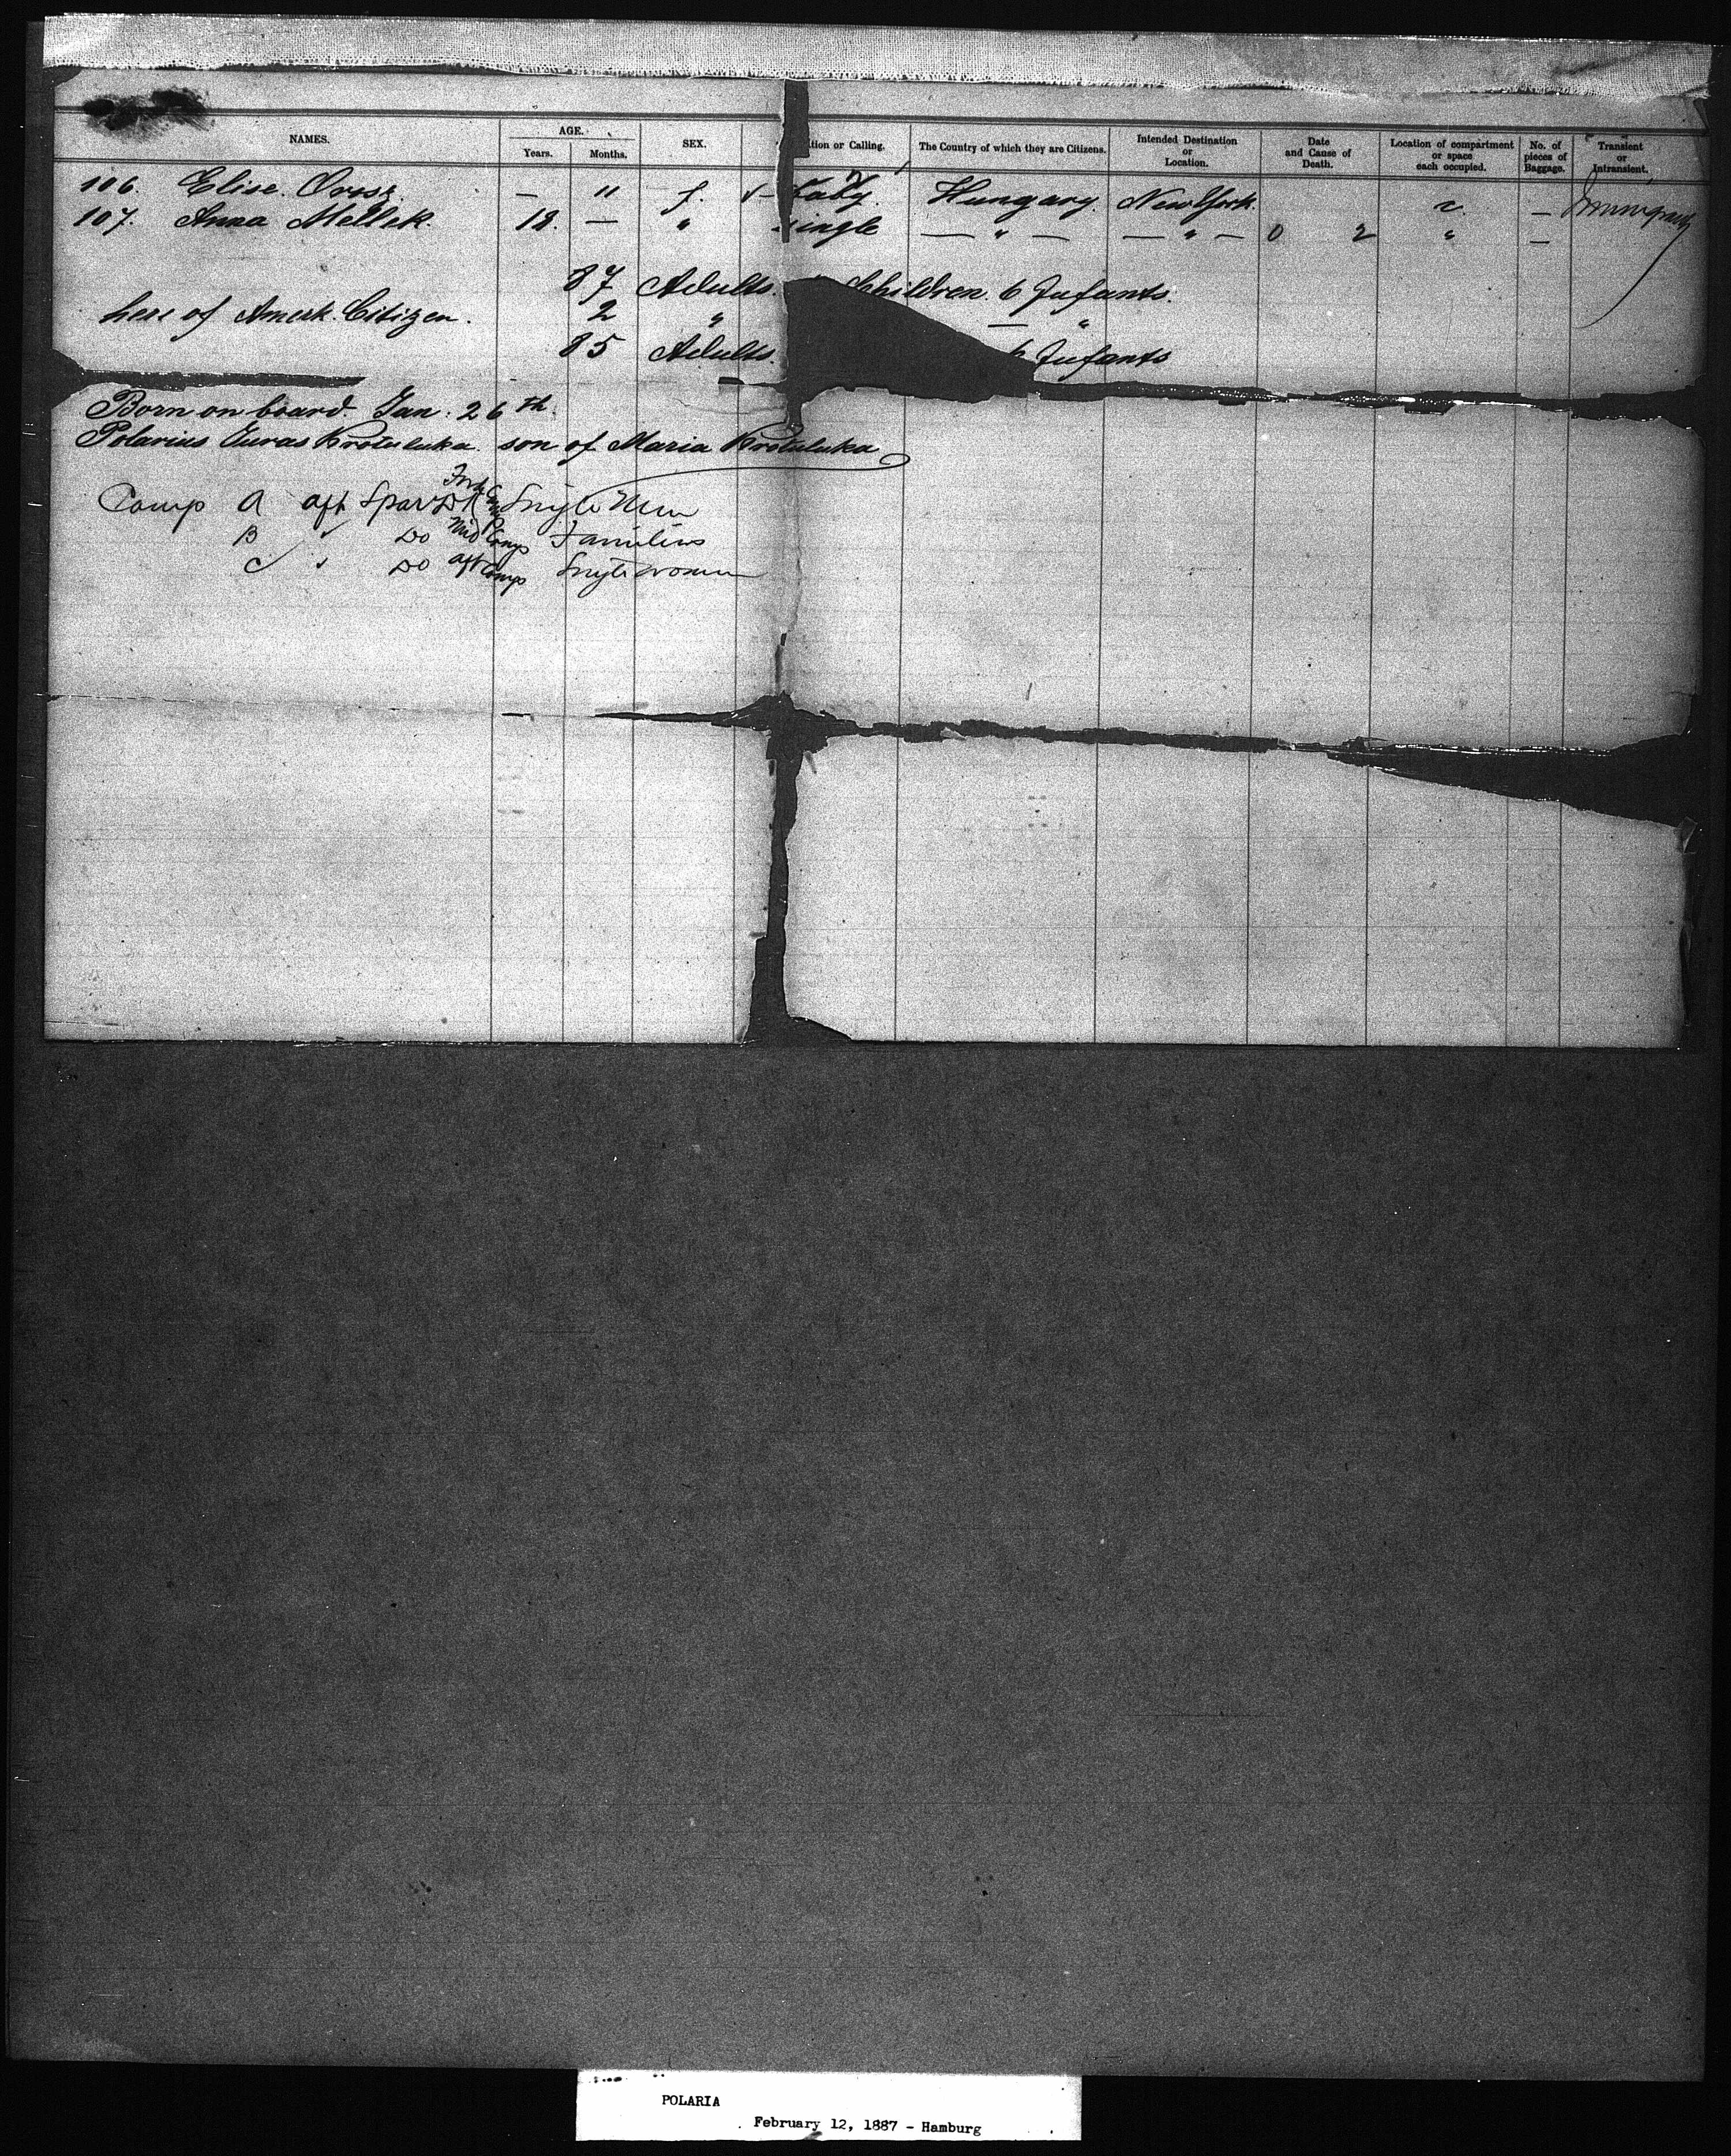 NAMES. AGE. Years. Months. SEX. tion or Calling. The Country of which they are Citizens. Intended Destination or Location. Date and Cause of Death. Location of compartment or space each occupied. No. of pieces of Baggage. Transient or Intransient.
106. Elise Orosz — 11 f. Baby. Hungary. New York. 2. —
107. Anna Mellek. 18. — " single — " — — " — 0 2 " —
87 Adults. Children. 6 Infants.
here of Amerk. Citizen. 2 " — "
85 Adults. 6 Infants
Born on board. Jan. 26th.
Polarius Juras Krotuluka. son of Maria Krotuluka
Comp A aft Spar Dk Single Men
B " Do Mid Comp Families
C " Do aft Comp Single women
POLARIA
February 12, 1887 - Hamburg